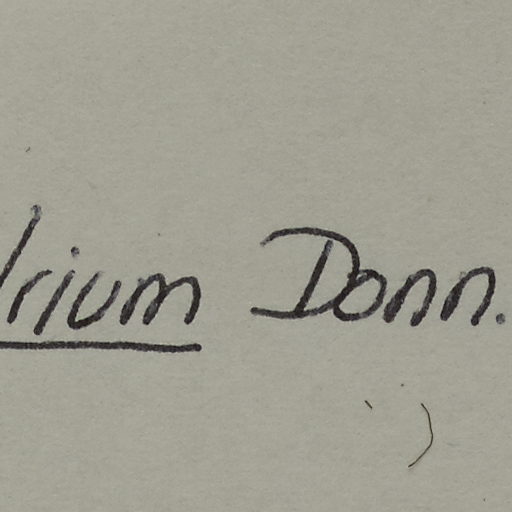 drium Donn.